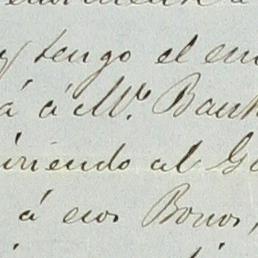 y tengo el en
á á Mr. Bank
iriendo al Go
á esos Bonos,